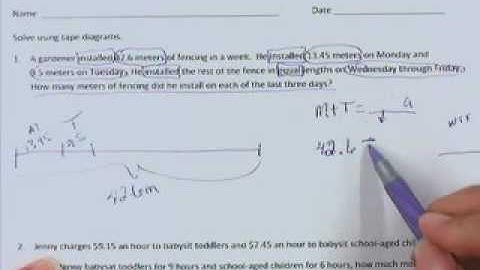 Name Date
Solve using tape diagrams.
1. A gardener installed 42.6 meters of fencing in a week. He installed 13.45 meters on Monday and
9.5 meters on Tuesday. He installed the rest of the fence in equal lengths on Wednesday through Friday.
How many meters of fencing did he install on each of the last three days?
M+T = a
M T
13.45 9.5
42.6
42.6m
2. Jenny charges $9.15 an hour to babysit toddlers and $7.45 an hour to babysit school-aged chil
Jenny babysat toddlers for 9 hours and school-aged children for 6 hours, how much